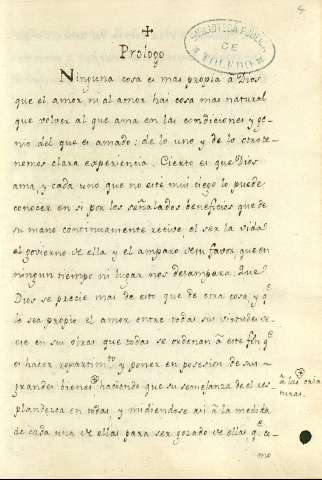 4
BIBLIOTECA PUBLICA
DE
TOLEDO
Prologo
Ninguna cosa es mas propia à Dios
que el amor, ni al amor hai cosa mas natural
que volver al que ama en las condiciones y ge-
nio del que es amado: de lo uno y de lo otro te-
nemos clara experiencia. Cierto es que Dios
ama, y cada uno que no este mui ciego lo puede
conocer en si por los señalados beneficios que de
su mano continuamente recive. el ser la vida
el govierno de ella y el amparo de su favor, que en
ningun tiempo ni lugar nos desampara. Que
Dios se precie mas de esto que de otra cosa, y q.e
le sea propio el amor entre todas sus virtudes se
ve en sus obras que todas se ordenan à este fin q.e
es hacer repartim.to y poner en posesion de sus
grandes bienes haciendo que su semejanza de el res-
à las cria
turas.
plandezca en todas, y midiendose asi à la medida
de cada una de ellas para ser gozado de ellas q.e co-
mo